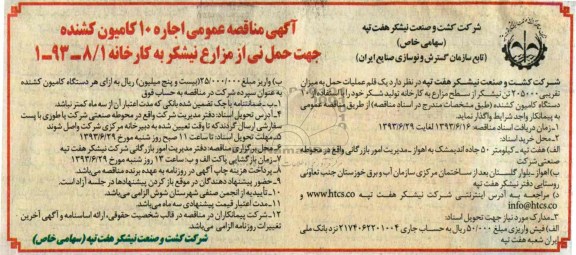 شرکت کشت و صنعت نیشکر هفت تپه
(سهامی خاص)
(تابع سازمان گسترش و نوسازی صنایع ایران)
آگهی مناقصه عمومی اجاره ۱۰ کامیون کشنده
جهت حمل نی از مزارع نیشکر به کارخانه ۸/۱-۹۳-۱
شرکت کشت و صنعت نیشکر هفت تپه در نظر دارد یک قلم عملیات حمل به میزان
تقریبی ۲۰۵۰۰۰ تن نیشکر از سطح مزارع به کارخانه تولید شکر خود را با استفاده از ۲۰
دستگاه کامیون کشنده (طبق مشخصات مندرج در اسناد مناقصه) از طریق مناقصه عمومی
به پیمانکار واجد شرایط واگذار نماید.
۱-زمان دریافت اسناد مناقصه: ۱۳۹۳/۶/۱۶ لغایت ۱۳۹۳/۶/۲۹
۲-محل خرید اسناد:
الف) هفت تپه-کیلومتر ۵۰ جاده اندیمشک به اهواز-مدیریت امور بازرگانی واقع در محوطه
صنعتی شرکت
ب)اهواز-بلوار گلستان بعد از ساختمان مرکزی سازمان آب و برق خوزستان جنب تعاونی
روستایی دفتر نیشکر هفت تپه
د) مراجعه به آدرس اینترنتی شرکت نیشکر هفت تپه www.htcs.co و
info@htcs.co
۳-مدارک مورد نیاز جهت تحویل اسناد:
الف) فیش واریزی مبلغ ۵۰۰/۰۰۰ ریال به حساب جاری ۲۱۷۴۰۶۲۲۰۱۰۰۴ نزد بانک ملی
ایران شعبه هفت تپه
ب) واریز مبلغ ۲۵/۰۰۰/۰۰۰ (بیست و پنج میلیون) ریال به ازای هر دستگاه کامیون کشنده
به عنوان سپرده شرکت در مناقصه به حساب فوق
ج)-ضمانتنامه یا چک تضمین شده بانکی که مدت اعتبار آن از سه ماه کمتر نباشد.
۴-آدرس تحویل اسناد: دفتر مدیریت شرکت واقع در محوطه صنعتی شرکت یا طوری با پست
سفارشی ارسال گردد که تا وقت تعیین شده به دبیرخانه مرکزی شرکت واصل شوند
۵-مهلت تحویل اسناد: تا ساعت ۱۱ صبح روز شنبه مورخ ۱۳۹۳/۶/۲۹
۶-محل برگزاری مناقصه: دفتر مدیریت امور بازرگانی شرکت نیشکر هفت تپه
۷-زمان بازگشایی پاکت الف و ب: ساعت ۱۳ روز شنبه مورخ ۱۳۹۳/۶/۲۹
۸-پرداخت هزینه چاپ آگهی در روزنامه به عهده برنده مناقصه می باشد.
۹-حضور پیشنهاد دهندگان در موقع باز کردن پیشنهادها در جلسه آزاد است.
۱۰-تاییدیه از انجمن صنفی شهرستان شوش الزامی می باشد.
۱۱-مدت اعتبار قیمت پیشنهادی سه ماه می باشد
۱۲-شرکت پیمانکاران در مناقصه در قالب شخصیت حقوقی، ارائه اساسنامه و آگهی آخرین
تغییرات روزنامه الزامی می باشد.
شرکت کشت و صنعت نیشکر هفت تپه (سهامی خاص)